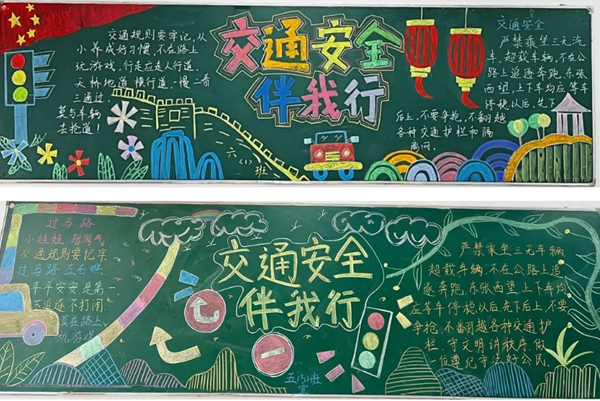 交通规则要牢记，从
小养成好习惯，不在路上
玩游戏，行走应走人行道，
天桥地道横行道，慢一看
三通过，
莫与车辆
去抢道！
交通安全
伴我行
六（1）班
交通安全
严禁乘坐三无汽
车、超载车辆，不在公
路上追逐奔跑，东张
西望，上下车均应等车
停稳以后，先下
后上，不要争抢，不翻越
各种交通护栏和隔
离网。
过马路
小娃娃，别淘气
交通规则要记牢
过马路 左右瞧
平平安安是第一
不追逐不打闹
莫在路上
玩游戏
交通安全
伴我行
五（5）班
严禁乘坐三无车辆，
超载车辆，不在公路上追
逐奔跑，东张西望，上下车均
应等车停稳以后，先下后上，不要
争抢，不翻越各种交通护
栏，守文明讲秩序，做
一位遵纪守法好公民。